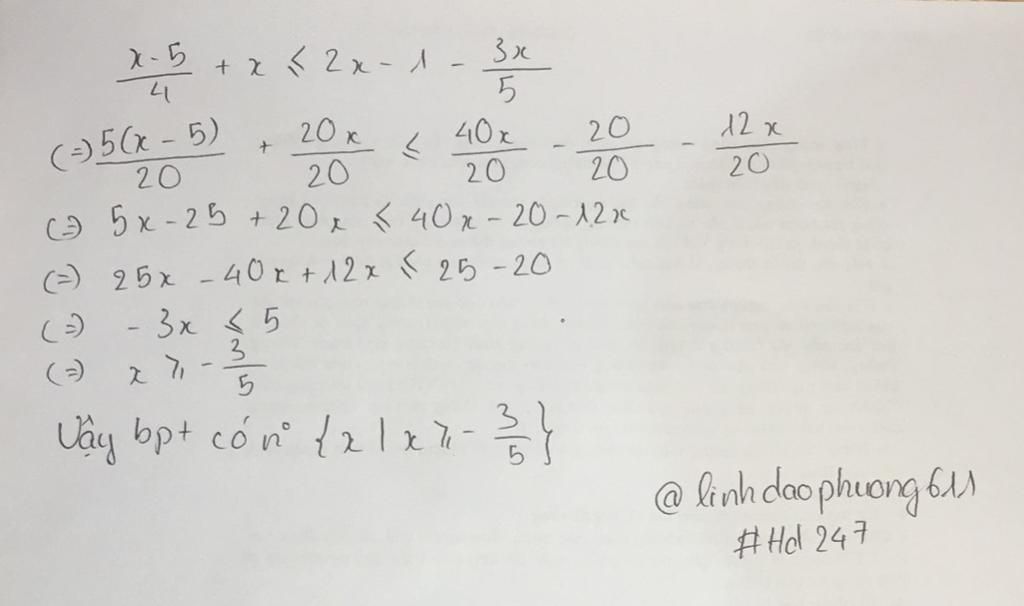 x-5/4 + x ⩽ 2x - 1 - 3x/5
(=) 5(x - 5)/20 + 20x/20 ⩽ 40x/20 - 20/20 - 12x/20
(=) 5x - 25 + 20x ⩽ 40x - 20 - 12x
(=) 25x - 40x + 12x ⩽ 25 - 20
(=) - 3x ⩽ 5
(=) x ⩾ - 3/5
Vậy bpt có n° {x | x ⩾ - 3/5}
@linhdaophuong611
#Hd 247